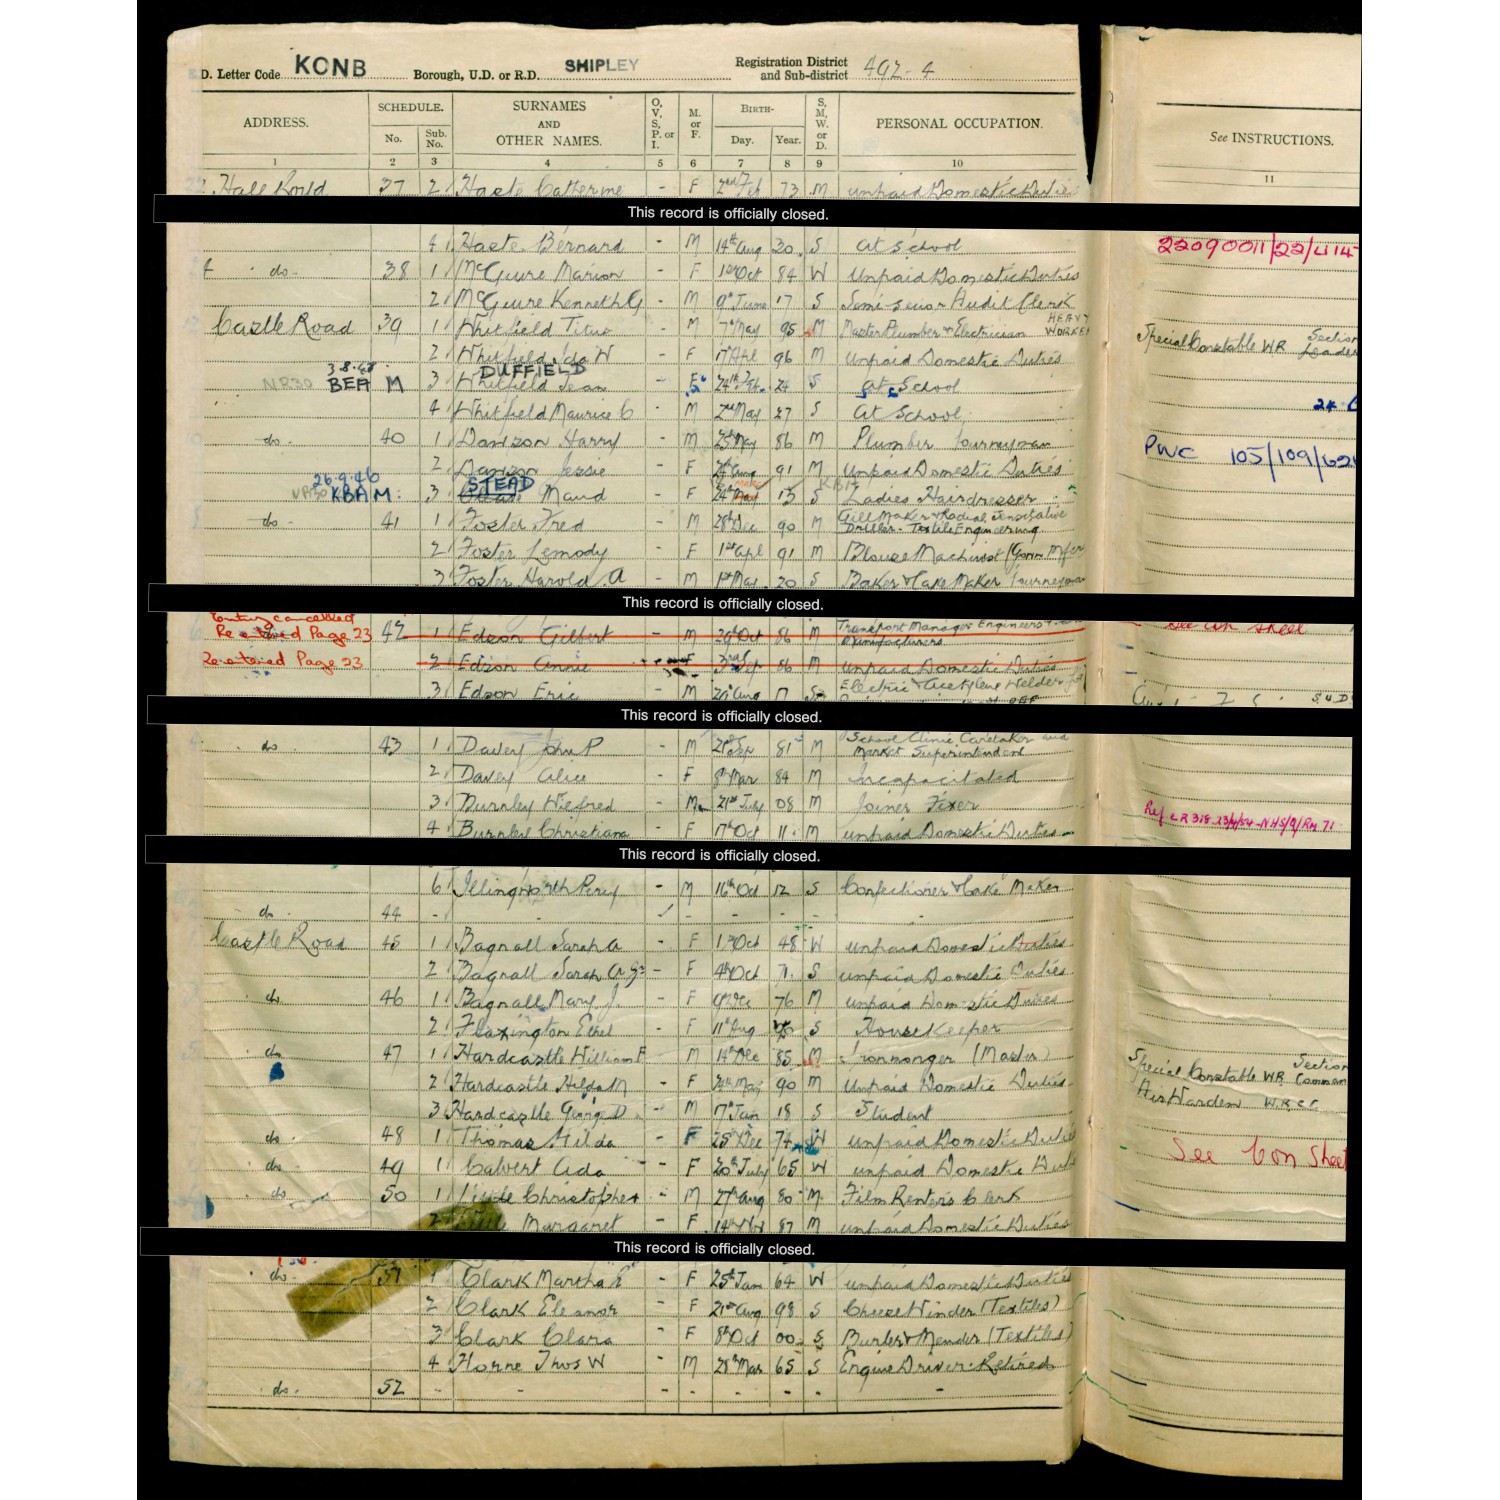 E.D. Letter Code KONB Borough, U.D. or R.D. SHIPLEY Registration District and Sub-district 492-4
ADDRESS. SCHEDULE. No. Sub. No. SURNAMES AND OTHER NAMES. O, V, S, P. or I. M. or F. BIRTH- Day. Year. S, M, W, or D. PERSONAL OCCUPATION. See INSTRUCTIONS.
1 2 3 4 5 6 7 8 9 10 11
37 2 Haste Catherine - F 2nd Feb 73 M unpaid Domestic Duties
This record is officially closed.
4 Haste Bernard - M 14th Aug 30 S at school
do 38 1 McGuire Marion - F 1st Oct 84 W Unpaid Domestic Duties
2 McGuire Kenneth G - M 9th June 17 S Semi-senior Audit Clerk
Castle Road 39 1 Whitfield Titus - M 7th May 95 M Master Plumber & Electrician HEAVY WORKER Special Constable WR Section Leader
2 Whitfield Ida W - F 17 Apl 96 M Unpaid Domestic Duties
3.8.48 DUFFIELD
NR30 BEA M 3 Whitfield Jean - F 24th Feb 24 S at School
4 Whitfield Maurice C - M 2nd May 27 S At School
do 40 1 Dawson Harry - M 25th May 86 M Plumber Journeyman
PWC 105/109/62
2 Dawson Jessie - F Aug 91 M Unpaid Domestic Duties
26.9.46 STEAD
KBAM: 3 Maud - F 24th 13 S Ladies Hairdresser
do 41 1 Foster Fred - M 28th Dec 90 M Gill Maker & Radial Driller - Textile Engineering
2 Foster Lemody - F 1st Apl 91 M Blouse Machinist (Gown Mfcr
3 Foster Harold A - M 1st Mar 20 S Baker & Cake Maker Journeyman
This record is officially closed.
Entry cancelled
Re entered Page 23 42 1 Edson Gilbert - M 29th Oct 86 M Transport Manager Engineers Manufacturers
Re-entered Page 23 2 Edson Annie F 3rd Sep 86 M unpaid Domestic Duties
3 Edson Eric - M Aug 17 S Electric & Acetylene Welder
This record is officially closed.
do 43 1 Davey John P - M Sep 81 M School Clinic Caretaker and Market Superintendent
2 Davey Alice - F 8th Mar 84 M Incapacitated
3 Burnley Wilfred - M 21st July 08 M Joiner Fixer
4 Burnley Christiana - F 17th Oct 11 M unpaid Domestic Duties
This record is officially closed.
6 Illingworth Percy - M 16th Oct 12 S Confectioner & Cake Maker
do 44 - - - - - - -
Castle Road 45 1 Bagnall Sarah A - F 13 Oct 48 W unpaid Domestic Duties
2 Bagnall Sarah A - F 4th Oct 71 S unpaid Domestic Duties
do 46 1 Bagnall Mary J. - F Dec 76 M unpaid Domestic Duties
2 Flaxington Ethel - F 11th Aug S Housekeeper
do 47 1 Hardcastle William F - M 14th Dec 85 M Ironmonger (Master) Special Constable WR Section
2 Hardcastle Hilda M - F May 90 M Unpaid Domestic Duties Air Warden
3 Hardcastle George D - M 17th Jan 18 S Student
do 48 1 Thomas Hilda - F 25th Dec 74 W unpaid Domestic Duties
See on Sheet
do 49 1 Calvert Ada - F 20th July 65 W unpaid Domestic Duties
do 50 1 Little Christopher - M 27th Aug 80 M Film Renters Clerk
2 Little Margaret - F 14th Nov 87 M unpaid Domestic Duties
This record is officially closed.
do 51 1 Clark Martha - F 25th Jan 64 W unpaid Domestic Duties
2 Clark Eleanor - F 21st Aug 98 S Cheese Winder (Textiles)
3 Clark Clara - F 8th Oct 00 S Burler & Mender (Textiles)
4 Horne Thos W - M 28th Mar 65 S Engine Driver - Retired
do 52 - - - - - - -